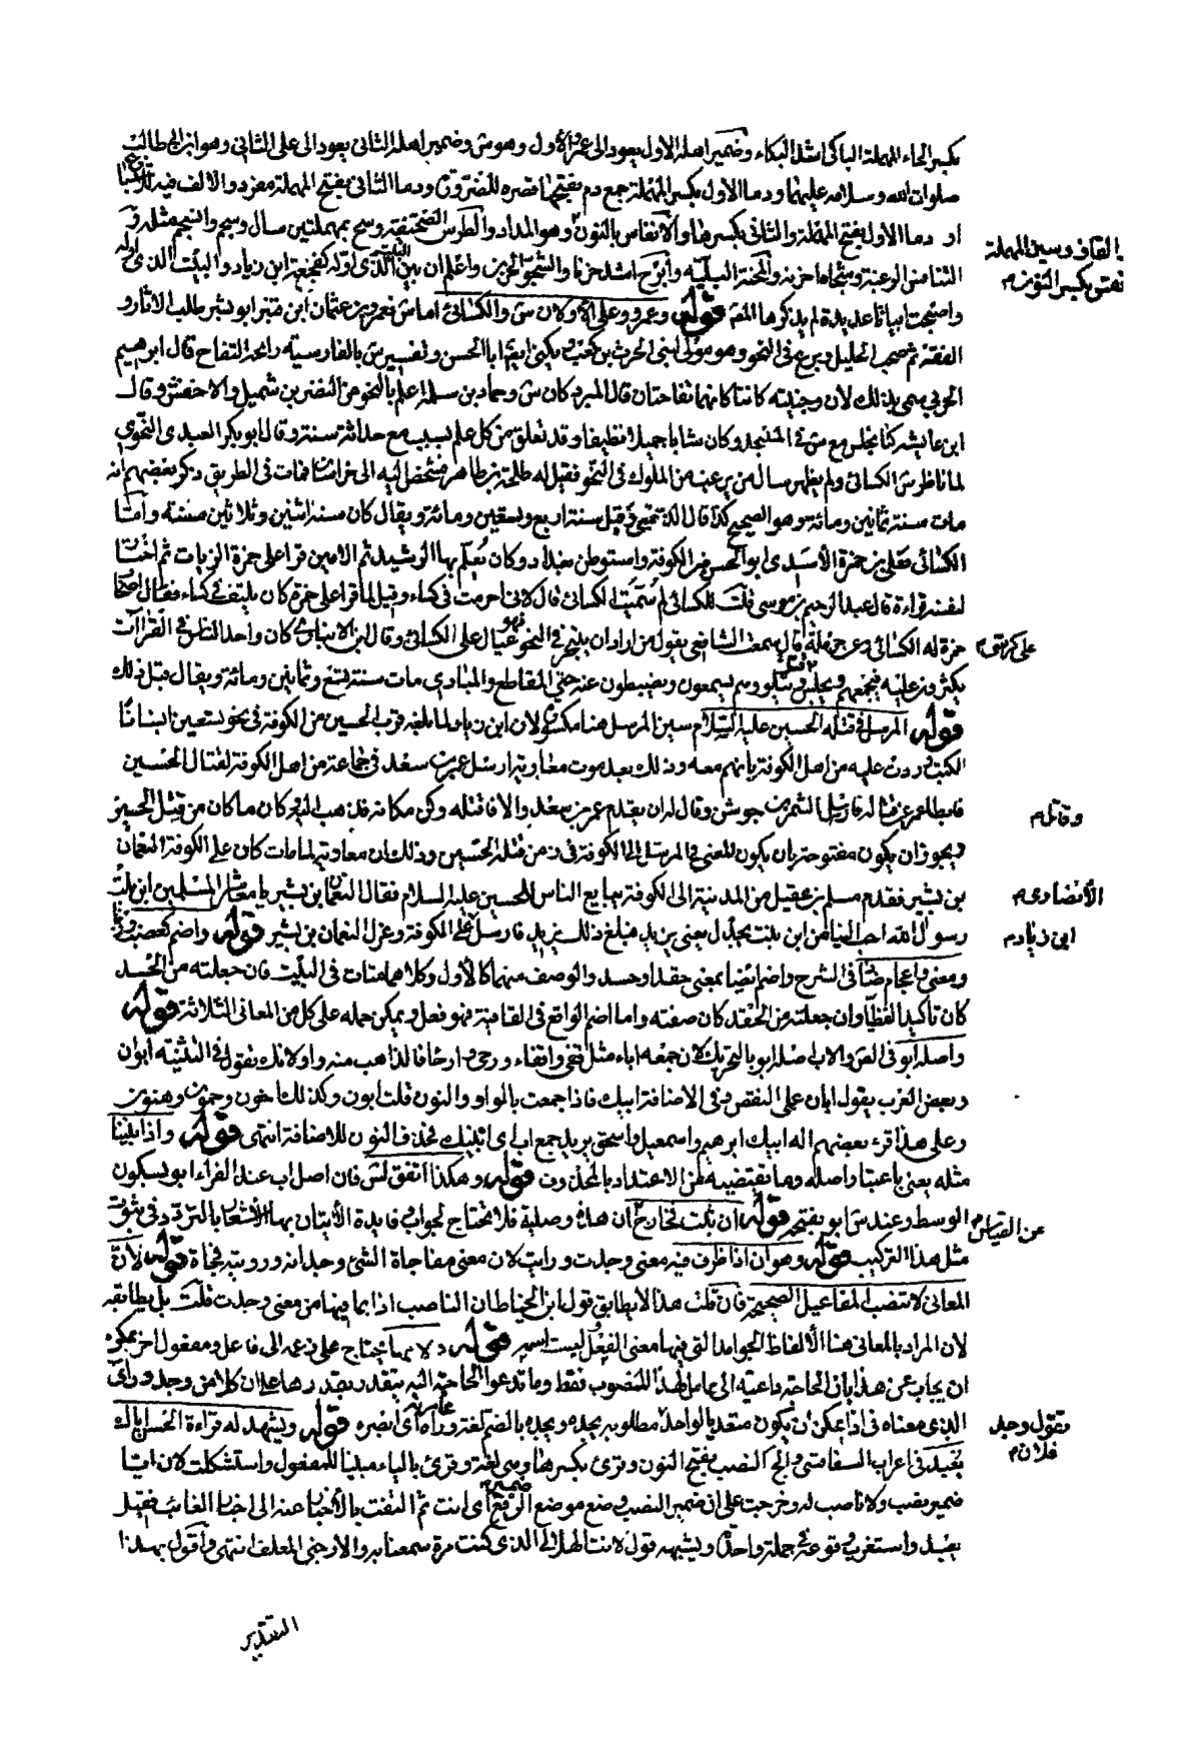 بكسر الحاء المهملة الباكى اشد البكاء وضمير اهله الاول يعود الى عمرو الأول وهو س وضمير اهله الثانى يعود الى على الثانى وهو ابن ابى طالب
صلوات الله وسلامه عليهما ودما الأول بكسر المهملة جمع دم بفتحها قصره للضرورة ودما الثانى بفتح المهملة مفرد والالف فيه
او دما الاول بفتح المهملة والثانى بكسرها والأنفاس بالنون وهو المداد والطرس الصحيفة وسح بمهملتين سال وسجم وانسجم مثله
القاف وسين المهملة
نفس بكسر النون م
الثنا من الوعبة وشجاه احزنه والمحنة البلية وابرح اشد حزنا والشجو الحزن واعلم ان بين البيت الذى اوله كفجعة ابن زياد والبيت الذى اوله
واصبحت ابياتا عديدة لم يذكرها المص قوله وعمرو وعلى الاولان س والكسائى اما س فعمرو بن عثمان ابن قنبر ابو بشر طلب الاثار و
الفقه ثم صحب الخليل وبرع فى النحو وهو مولى لبنى الحرث بن كعب ويكنى ايضا ابا الحسن وتفسير س بالفارسية رائحة التفاح قال ابرهيم
الحربى سمى بذلك لان وجنتيه كانتا كانهما تفاحتان قال المبرد كان س وحماد بن سلمة اعلم بالنحو من النضر بن شميل والاخفش وقال
ابن عايشة كنا نجلس مع س فى المسجد وكان شابا جميلا نظيفا وقد تعلق من كل علم بسبب مع حداثة سنه وقال ابو بكر العبدى النحوي
لما ناظر س الكسائى ولم يظهر سال من يرغب من الملوك فى النحو فقيل له طلحة بن طاهر فشخص اليه الى خراسان فمات فى الطريق ذكر بعضهم انه
مات سنة ثمانين ومائة وهو الصحيح كذا قال الذهبى وقيل سنة اربع وتسعين ومائة ويقال كان سنه اثنين وثلاثين سنة واما
الكسائى فعلى بن حمزة الأسدى ابو الحسن من الكوفة واستوطن بغداد وكان يعلم بها الرشيد ثم الامين قرا على حمزة الزيات ثم اختار
لنفسه قراءة قال عبد الرحيم بن موسى قلت للكسائى لم سميت الكسائى قال لانى احرمت فى كساء وقيل لما قرا على حمزة كان يلتف فى كساء فقال اصحاب
حمزة له الكسائى وعن حرملة قال سمعت الشافعى يقول من اراد ان يتبحر فى النحو فهو عيال على الكسائى وقال ابن الانبارى كان واحد الناس فى القراآت
يكثرون عليه فيجمعهم ويجلس ويتلو وهم يسمعون ويضبطون عنه حتى المقاطع والمبادى مات سنة تسع وثمانين ومائة ويقال قبل ذلك
على كرسى م
قوله المرسل فى قتله الحسين عليه السلام سين المرسل هنا مكسور لان ابن زياد لما بلغه قرب الحسين من الكوفة فى نحو سبعين انسانا
الكتب وردت عليه من اهل الكوفة بانهم معه وذلك بعد موت معاوية ارسل عمر بن سعد فى جماعة من اهل الكوفة لقتال الحسين
فابطا عمر عن قتاله فارسل الشمر بن جوشن وقال له ان يقدم عمر بن سعد والا فاقتله وكن مكانه فذهب اليه وكان ما كان من قتل الحسين
وقاتله م
ويجوز ان يكون مفتوحة بان يكون للمعنى فى المرسل الى الكوفة فى زمن قتله الحسين وذلك ان معاوية لما مات كان على الكوفة النعمان
بن بشير فقدم مسلم بن عقيل من المدينة الى الكوفة يبايع الناس للحسين عليه السلام فقال النعمان بن بشير يا معاشر المسلمين ابن بنت
الأنصارى م
رسول الله احب الينا من ابن بنت بجدل يعنى يزيد فبلغ ذلك يزيد فارسل على الكوفة وعزل النعمان بن بشير قوله واضم كغضب وزنا
ابن زياد م
ومعنى واعجام ضا فى الشرح واضم ايضا بمعنى حقد او حسد والوصف منهما كالأول وكلاهما متات فى البيت فان جعلته من الحسد
كان تأكيدا لفظيا وان جعلته من الحقد كان صفته واما اضم الواقع فى القافية فهو فعل ويمكن حمله على كل من المعانى الثلاثة قوله
واصله أبو فى والاب اصله ابو بالتحريك لان جمعه اباء مثل قفى واقفاء ورحى وارحاء فالذاهب منه واو لانك تقول فى التثنية ابوان
وبعض العرب يقول ابان على النقص وفى الاضافة ابيك فاذا جمعت بالواو والنون قلت ابون وكذلك اخون وحمون وهنون
وعلى هذا قرء بعضهم اله ابيك ابرهيم واسمعيل واسحق يريد جمع اب اى ابينك فحذف النون للاضافة انتهى قوله واذا بنينا
مثله يعنى باعتبار اصله وما تقتضيه من الاعتداد بالمحذوف قوله وهكذا اتفق لس فان اصل اب عند الفراء ابو بسكون
الوسط وعند س ابو بفتحه قوله ان ثبت تخارج ان هذه وصلية فلا تحتاج لجواب وفايدة الأتيان بها الأشعار بالتردد فى ثبوت
عن القياس م
مثل هذا التركيب قوله وهو ان اذا ظرف فيه معنى وجدت ورايت لان معنى مفاجاة الشئ وجدانه ورويته فجاة قوله لان
المعانى لا تنصب المفاعيل الصحيحة فان قلت هذا لا يطابق قول ابن الخياط ان الناصب اذا بما فيها من معنى وجدت قلت بل يطابقه
لان المراد بالمعانى هنا الألفاظ الجوامد التى فيها معنى الفعل وليست اسمه قوله ولانها تحتاج على زعمه الى فاعل ومفعول اخر يمكن
ان يجاب عن هذا بان الحاجة داعية الى عامل لهذا المنصوب فقط وما تدعوا الحاجة اليه يتقدر بقدرها على ان كلا من وجد ورأى
الذى معناه فى اذا يمكن ان يكون متعديا لواحد وجد مطلوبه يجده ويجده بالضم لغة عامرية ورآه أى ابصره قوله ويشهد له قراءة الحسن اياك
يقول وجد
فلان م
يعبد فى اعراب السفاقسى والجمهور بفتح النون وقرئ بكسرها وهى لغة وقرئ بالياء مبنيا للمفعول واستشكلت لان ايا
ضمير نصب ولا ناصب له وخرجت على ان ضمير النصب وضع موضع ضمير الرفع أى انت ثم التفت بالأخبار عنه الى اخبار الغائب فقيل
يعبد واستغرب وقوعه فى جملة واحدة ويشبهه قوله لانت الهلالى الذى كنت مرة سمعنا به والارحبى المعلف انتهى وأقول بهذا
التقدير